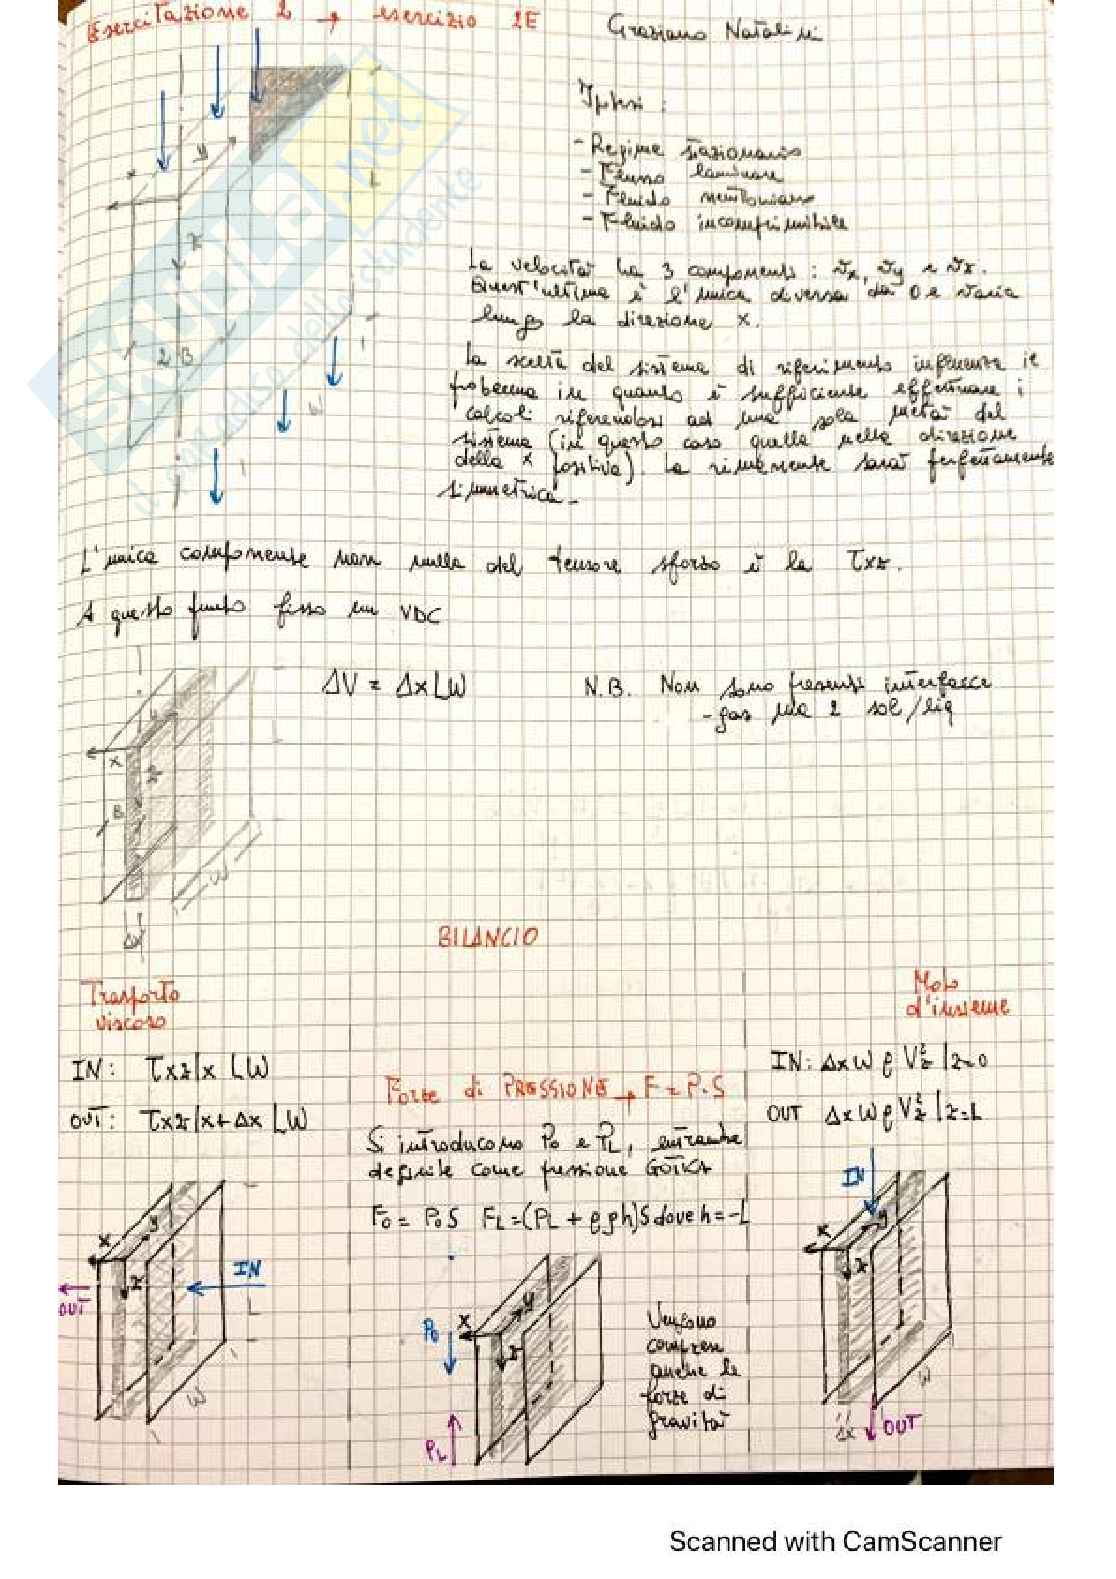 Esercitazione 2 → esercizio 2E
Graziano Natalini
Ipotesi :
- Regime stazionario
- Flusso laminare
- Fluido newtoniano
- Fluido incomprimibile
La velocità ha 3 componenti : vx, vy e vz.
Quest'ultima è l'unica diversa da 0 e varia
lungo la direzione x.
La scelta del sistema di riferimento influenza il
problema in quanto è sufficiente effettuare i
calcoli riferendosi ad una sola metà del
sistema (in questo caso quella nella direzione
della x positiva). La rimanente sarà perfettamente
simmetrica.
x
y
z
2B
L
W
L'unica componente non nulla del tensore sforzo è la τxz.
A questo punto fisso un VDC
ΔV = Δx LW
N.B. Non sono presenti interfacce
- gas ma 2 sol/liq
x
z
B
W
Δx
BILANCIO
Trasporto
viscoso
IN: τxz|x LW
OUT: τxz|x+Δx LW
Forze di PRESSIONE → F = P·S
Si introducono P0 e PL, entrambe
definite come pressione
F0 = P0 S FL = (PL + ρgh)S dove h = -L
Moto
d'insieme
IN: Δx W ρ Vz² |z=0
OUT Δx W ρ Vz² |z=L
x
y
z
IN
OUT
L
W
P0
x
y
z
PL
Vengono
comprese
anche le
forze di
gravità
IN
x
y
z
W
Δx
OUT
Scanned with CamScanner
SKUOLA.net